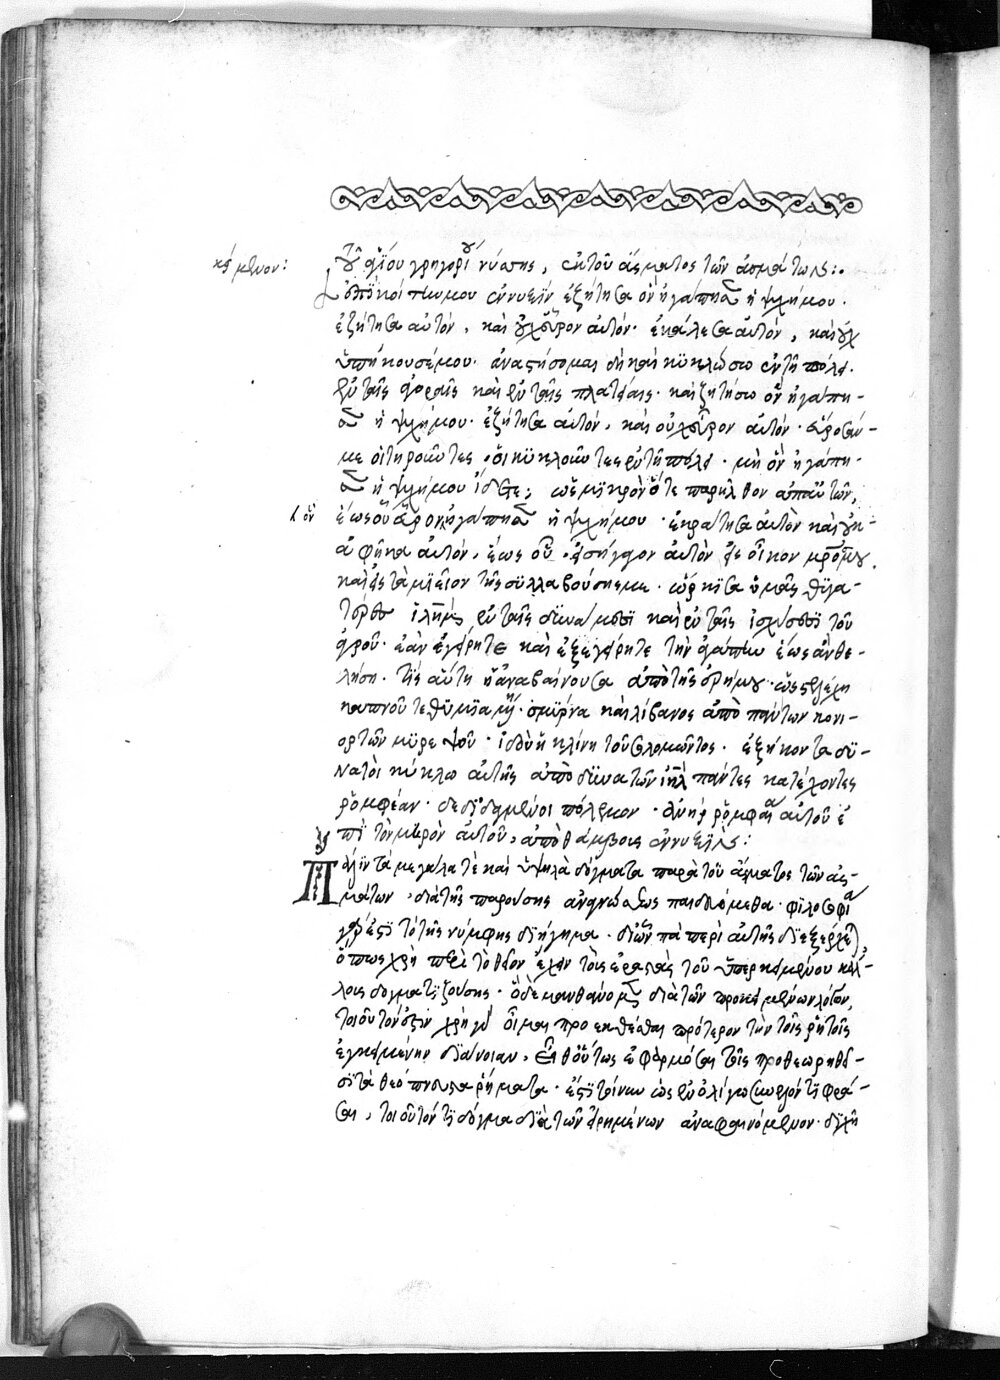 κείμενον:
Τοῦ ἁγίου γρηγορίου νύσσης, ἐκ τοῦ ἄσματος τῶν ἀσμάτων:
ἐπὶ κοίτην μου ἐν νυξὶν ἐζήτησα ὃν ἠγάπησεν ἡ ψυχή μου.
ἐζήτησα αὐτὸν, καὶ οὐχ εὗρον αὐτόν· ἐκάλεσα αὐτὸν, καὶ οὐχ
ὑπήκουσέ μου· ἀναστήσομαι δὴ καὶ κυκλώσω ἐν τῇ πόλει.
ἐν ταῖς ἀγοραῖς καὶ ἐν ταῖς πλατείαις· καὶ ζητήσω ὃν ἠγάπη-
σεν ἡ ψυχή μου· ἐζήτησα αὐτὸν, καὶ οὐχ εὗρον αὐτόν· εὕροσάν
με οἱ τηροῦντες, οἱ κυκλοῦντες ἐν τῇ πόλει· μὴ ὃν ἠγάπη-
σεν ἡ ψυχή μου ἴδετε; ὡς μικρὸν ὅτε παρῆλθον ἀπ' αὐτῶν,
ὃν
ἕως οὗ εὗρον ἠγάπησεν ἡ ψυχή μου· ἐκράτησα αὐτὸν καὶ οὐκ
ἀφῆκα αὐτὸν, ἕως οὗ εἰσήγαγον αὐτὸν εἰς οἶκον μρς μου
καὶ εἰς ταμιεῖον τῆς συλλαβούσης με· ὥρκισα ὑμᾶς θυγα-
τέρες ἱλημ ἐν ταῖς δυνάμεσι καὶ ἐν ταῖς ἰσχύσεσι τοῦ
ἀγροῦ· ἐὰν ἐγείρητε καὶ ἐξεγείρητε τὴν ἀγάπην ἕως ἂν θε-
λήσῃ· τίς αὕτη ἡ ἀναβαίνουσα ἀπὸ τῆς ἐρήμου· ὡς στελέχη
καπνοῦ τεθυμιαμένη· σμύρνα καὶ λίβανος ἀπὸ πάντων κονι-
ορτῶν μυρεψοῦ· ἰδοὺ ἡ κλίνη τοῦ σολομῶντος· ἑξήκοντα δυ-
νατοὶ κύκλω αὐτῆς ἀπὸ δυνατῶν ιηλ πάντες κατέχοντες
ῥομφέαν· δεδιδαγμένοι πόλεμον· ἀνὴρ ῥομφαία αὐτοῦ ἐ
πὶ τὸν μηρὸν αὐτοῦ, ἀπὸ θάμβους ἐν νυξίν:
Πάλιν τὰ μεγάλα τὲ καὶ ὑψηλὰ δόγματα παρὰ τοῦ ἄσματος τῶν ἀσ-
μάτων, διὰ τῆς παρούσης ἀναγνώσεως παιδευόμεθα· φιλοσοφία
γάρ ἐστι τὸ τῆς νύμφης διήγημα· δι' ὧν τὰ περὶ αὐτῆς διεξέρχεται,
ὅπως χρὴ περὶ τὸ θεῖον ἔχειν τοὺς ἐραστὰς τοῦ ὑπερκειμένου κάλ-
λους δογματιζούσης· ὃ δὲ μανθάνομεν διὰ τῶν προκειμένων λόγων,
τοιοῦτόν ἐστιν χρὴ γὰρ οἶμαι προεκθέσθαι πρότερον τὴν τοῖς ῥητοῖς
ἐγκειμένην διάνοιαν, εἶθ' οὕτως ἐφαρμόσαι τοῖς προθεωρηθεῖ-
σι τὰ θεόπνευστα ῥήματα· ἔστι τοίνυν ὡς ἐν ὀλίγω συνελόντι φρά-
σαι, τοιοῦτόν τι δόγμα διὰ τῶν εἰρημένων ἀναφαινόμενον· διχῆ